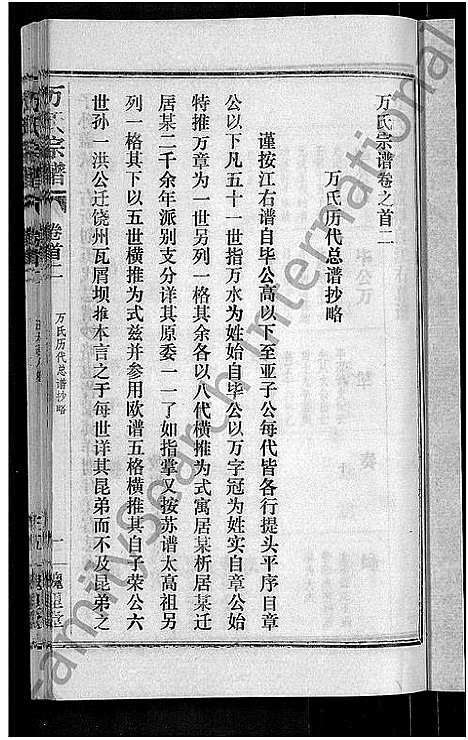 万氏宗谱卷之首二
万氏历代总谱抄略
谨按江右谱自毕公高以下至亚子公每代皆各行提头平序目章
公以下凡五十一世指万水为姓始自毕公以万字冠为姓实自章公始
特推万章为一世另列一格其余各以八代横推为式寓居某析居某迁
居某二千余年派别支分详其原委一一了如指掌又按苏谱太高祖另
列一格其下以五世横推为式兹并参用欧谱五格横推其自子荣公六
世孙一洪公迁饶州瓦屑坝推本言之于每世详其昆弟而不及昆弟之
万氏宗谱
卷首二
万氏历代总谱抄略
一
FamilySearch International